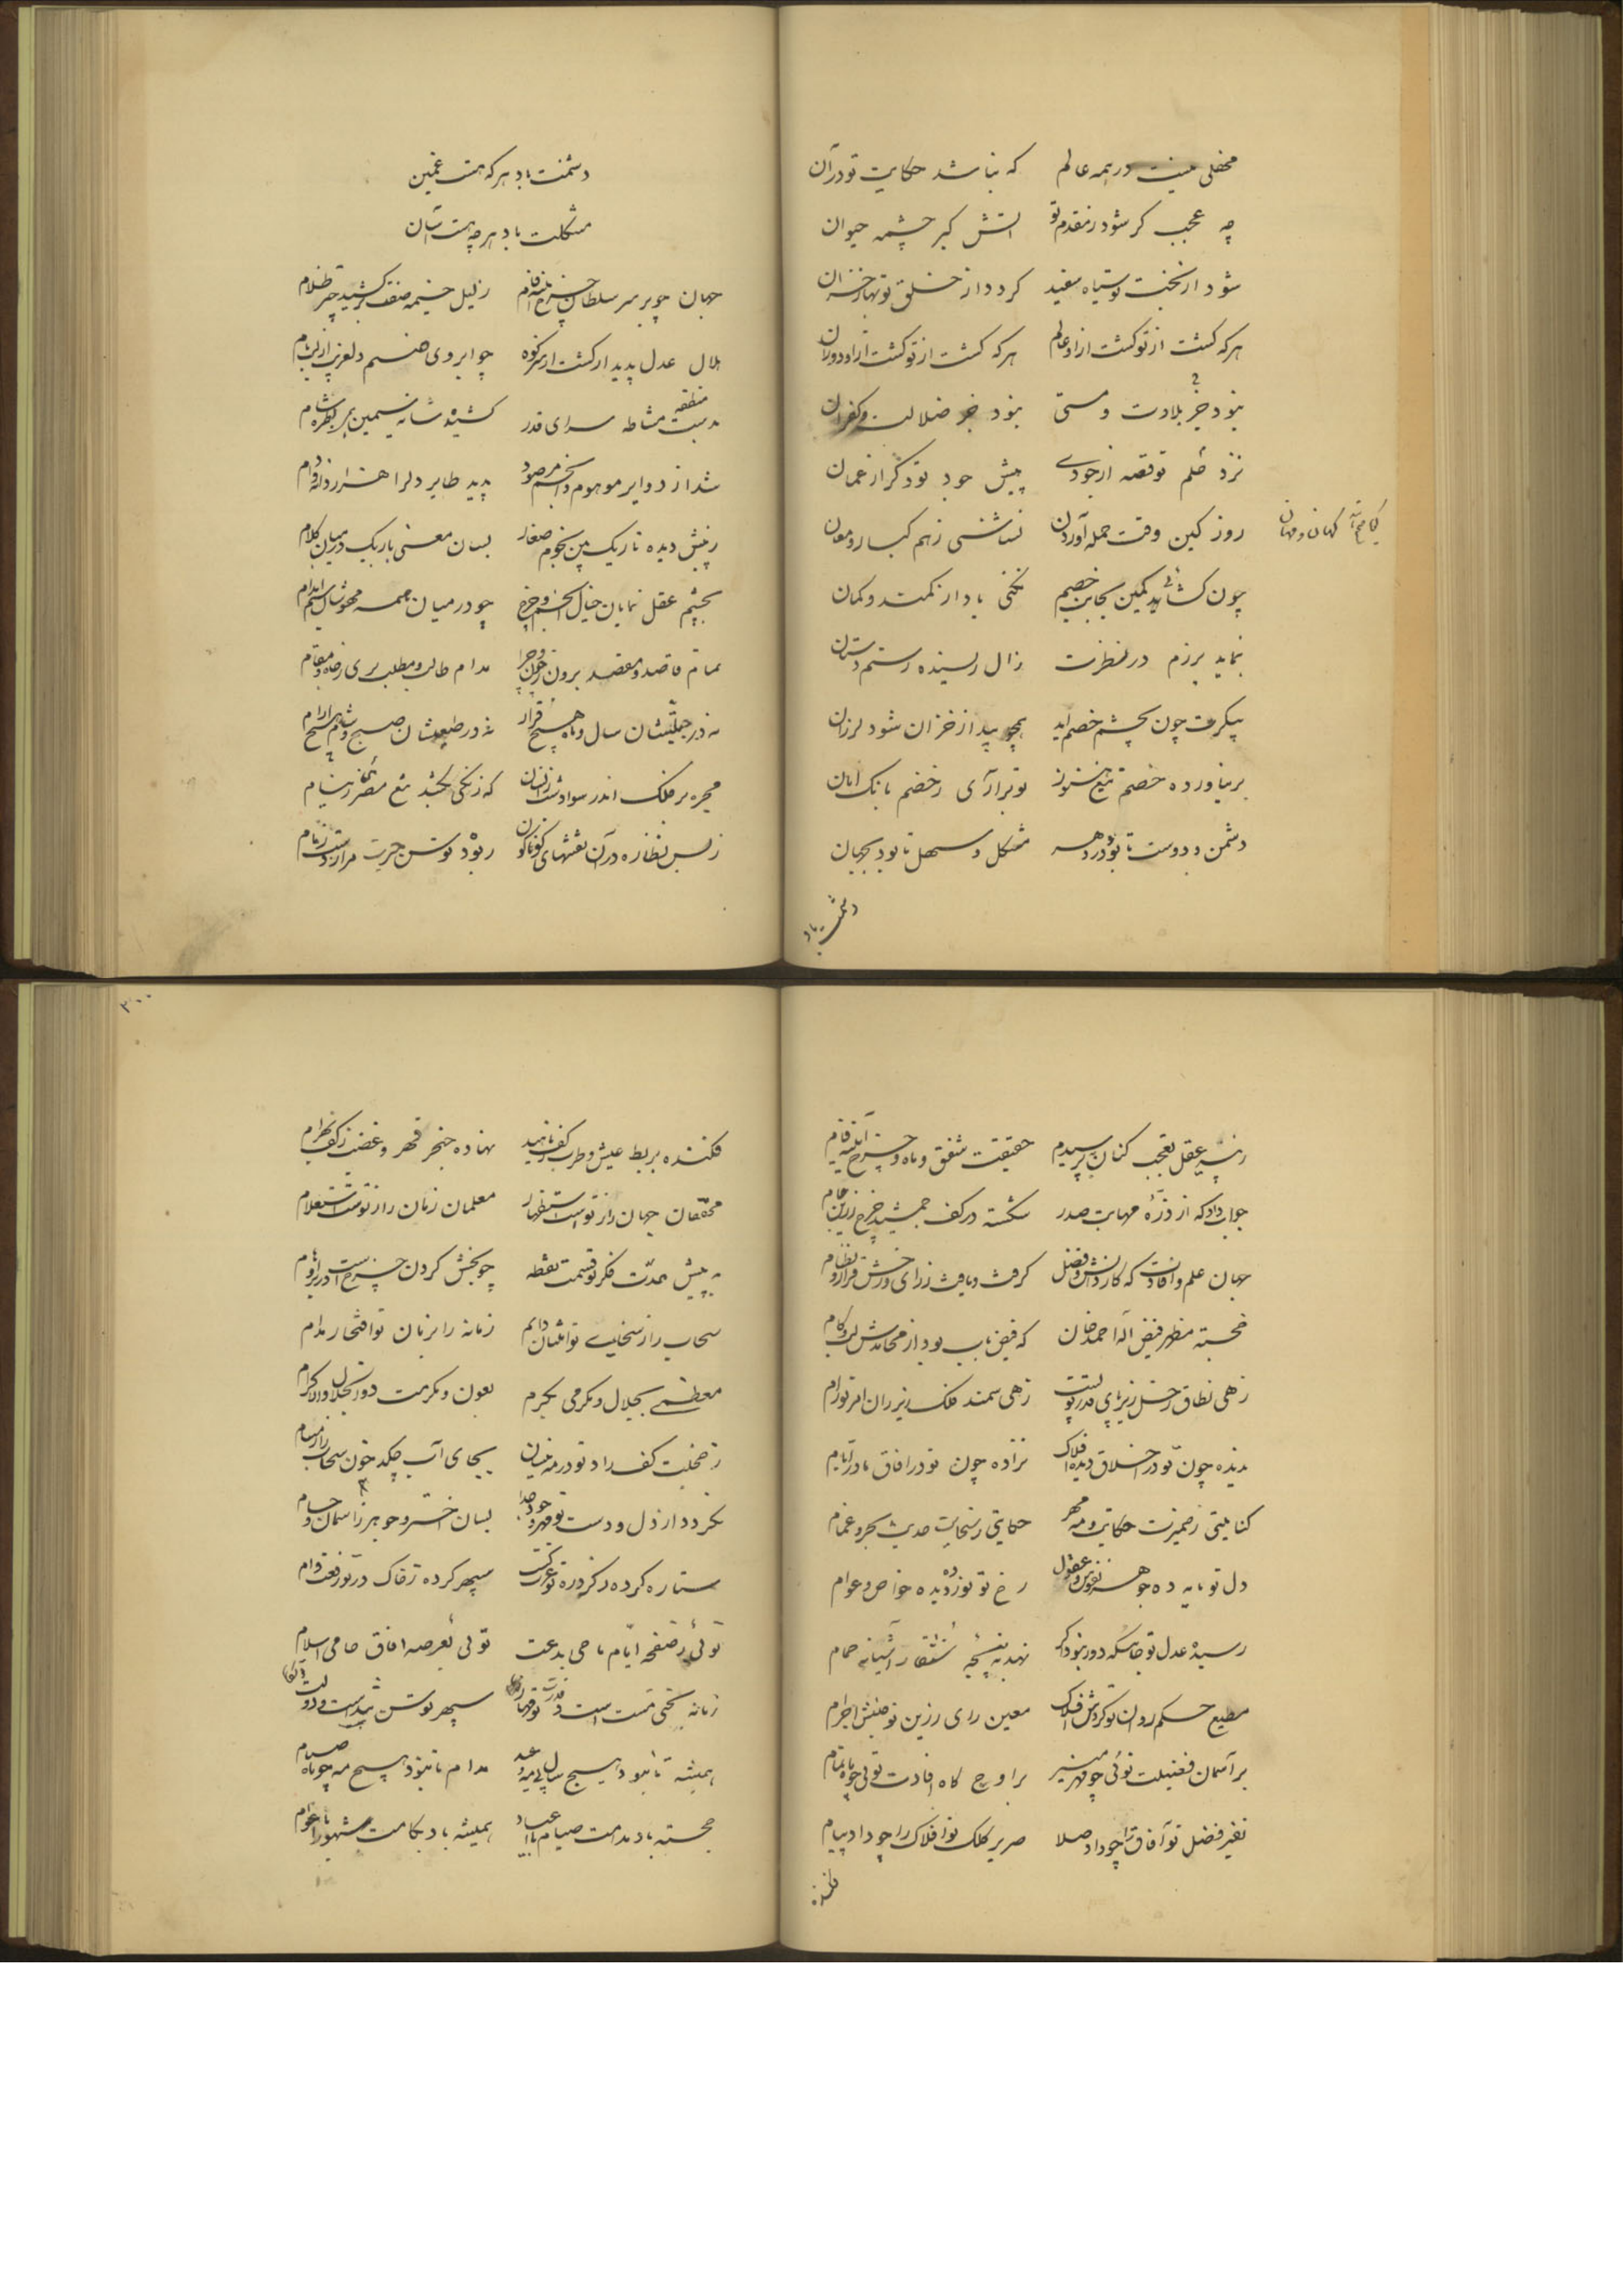 محفلی نیست در همه عالم که نباشد حکایت تو در آن
چه عجب گر شود ز مقدم تو آتش گبر چشمه حیوان
شود از بخت تو سیاه سفید گردد از خلق تو بهار خزان
هر که گشت از تو گشت ازو عالم هر که گشت از تو گشت ازو دوران
نبود جز بلادت و مستی نبود جز ضلالت و کفران
نزد علم تو قصه از جودی پیش جود تو ذکر از عمان
روز کین وقت حمله آوردن
چون گشائی کمین بجانب خصم نکنی یاد از کمند و کمان
نماید برزم در نظرت زال رستم دستان
پیکرت چون بچشم خصم آید همچو بید از خزان شود لرزان
بر نیاورده خصم تیغ هنوز تو برآری ز خصم بانک امان
دشمن و دوست تا بود در دهر مشکل و سهل تا بود بجهان
دشمنت باد
دشمنت باد هر که هست غمین
مشکلت باد هر چه هست آسان
جهان چو بر سر سلطان چرخ آینه فام ز لیل خیمه کشید چتر ظلام
هلال عدل پدیدار گشت از سر کوه چو ابروی صنم دلفریب از لب بام
بدست مشاطه سرای قدر منطقه کشیده شانه سیمین بر طره شام
شد از دوایر موهوم و انجم مرصود پدید طایر دلرا هزار دانه و دام
ز پیش دیده تاریک بین نجوم صغار بسان معنی باریک در میان کلام
بچشم عقل نمایان خیال انجم و چرخ چو در میان همه مهوشان سیم اندام
تمام قاصد و مقصد برون ز چون و چرا مدام طالب و مطلب بری ز جاه و مقام
نه در جبلتشان سال و ماه هیچ قرار نه در طبیعتشان صبح و شام هیچ آرام
مجره بر فلک اندر سواد شب زنسان که زنکی بکشد تیغ مصری ز نیام
ز بس نظاره در آن نقشهای گوناگون ربود توسن حیرت مرا ز دست زمام
ز پیر عقل تعجب کنان بپرسیدم حقیقت شفق و ماه و چرخ آینه فام
جواب داد که از ذره مهابت صدر شکسته در کف جمشید چرخ زرین جام
جهان علم و افادت که کار دانش و فضل گرفت و یافت ز رای و درخشش قرار و نظام
خجسته مظهر فیض اله احمد خان که فیض یاب بود از محامدش لب و کام
زهی نطاق زحل زیر پای قدر تو پست زهی سمند فلک زیر ران امر تو رام
ندیده چون تو در اخلاق دیده افلاک نزاده چون تو در آفاق مادر ایام
کنایتی ز ضمیرت حکایت مه و مهر حکایتی ز سخایت حدیث بحر و غمام
دل تو مایه ده جوهر نفوس و عقول رخ تو نور ده دیده خواص و عوام
رسیده عدل تو جائیکه دور نبود که نهد به پنجه شنقار آشیانه حمام
مطیع حکم روان تو گردش افلاک معین رای رزین تو جنبش اجرام
بر آسمان فضیلت توئی چو مهر منیر بر اوج گاه افادت توئی چو ماه تمام
نفیر فضل تو آفاق را چو داد صلا صریر کلک تو افلاک را چو داد پیام
فکنده
۳۰۰
فکنده بربط عیش و طرب ز کف ناهید نهاده خنجر قهر و غضب ز کف بهرام
محققان جهان راز تو است استظهار معلمان زمان راز تو است استعلام
به پیش حدت فکر تو قسمت نقطه چو بخش کردن چرخ است در بر اوهام
سحاب راز سخای تو امتنان دایم زمانه را بزمان تو افتخار مدام
معظمی بجلال و مکرمی بکرم بعون و مکرمت ذوالجلال والاکرام
ز خجلت کف راد تو در مه نیسان بجای آب چکد خون سحاب را ز مسام
نگردد از دل و دست تو مهر و جود جدا بسان اختر و جوهر ز آسمان و حسام
ستاره کرده ز گرد ره تو عزت کسب سپهر کرده ز خاک در تو رفعت وام
توئی ز صفحه ایام ماحی بدعت توئی بعرصه آفاق حامی اسلام
همیشه تا نبود هیچ سال بی مه عید مدام تا نبود هیچ مه چو ماه صیام
خجسته باد مدامت صیام با اعیاد همیشه باد بکامت شهور با اعوام